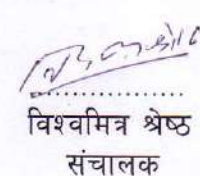 ....................
विश्वमित्र श्रेष्ठ
संचालक